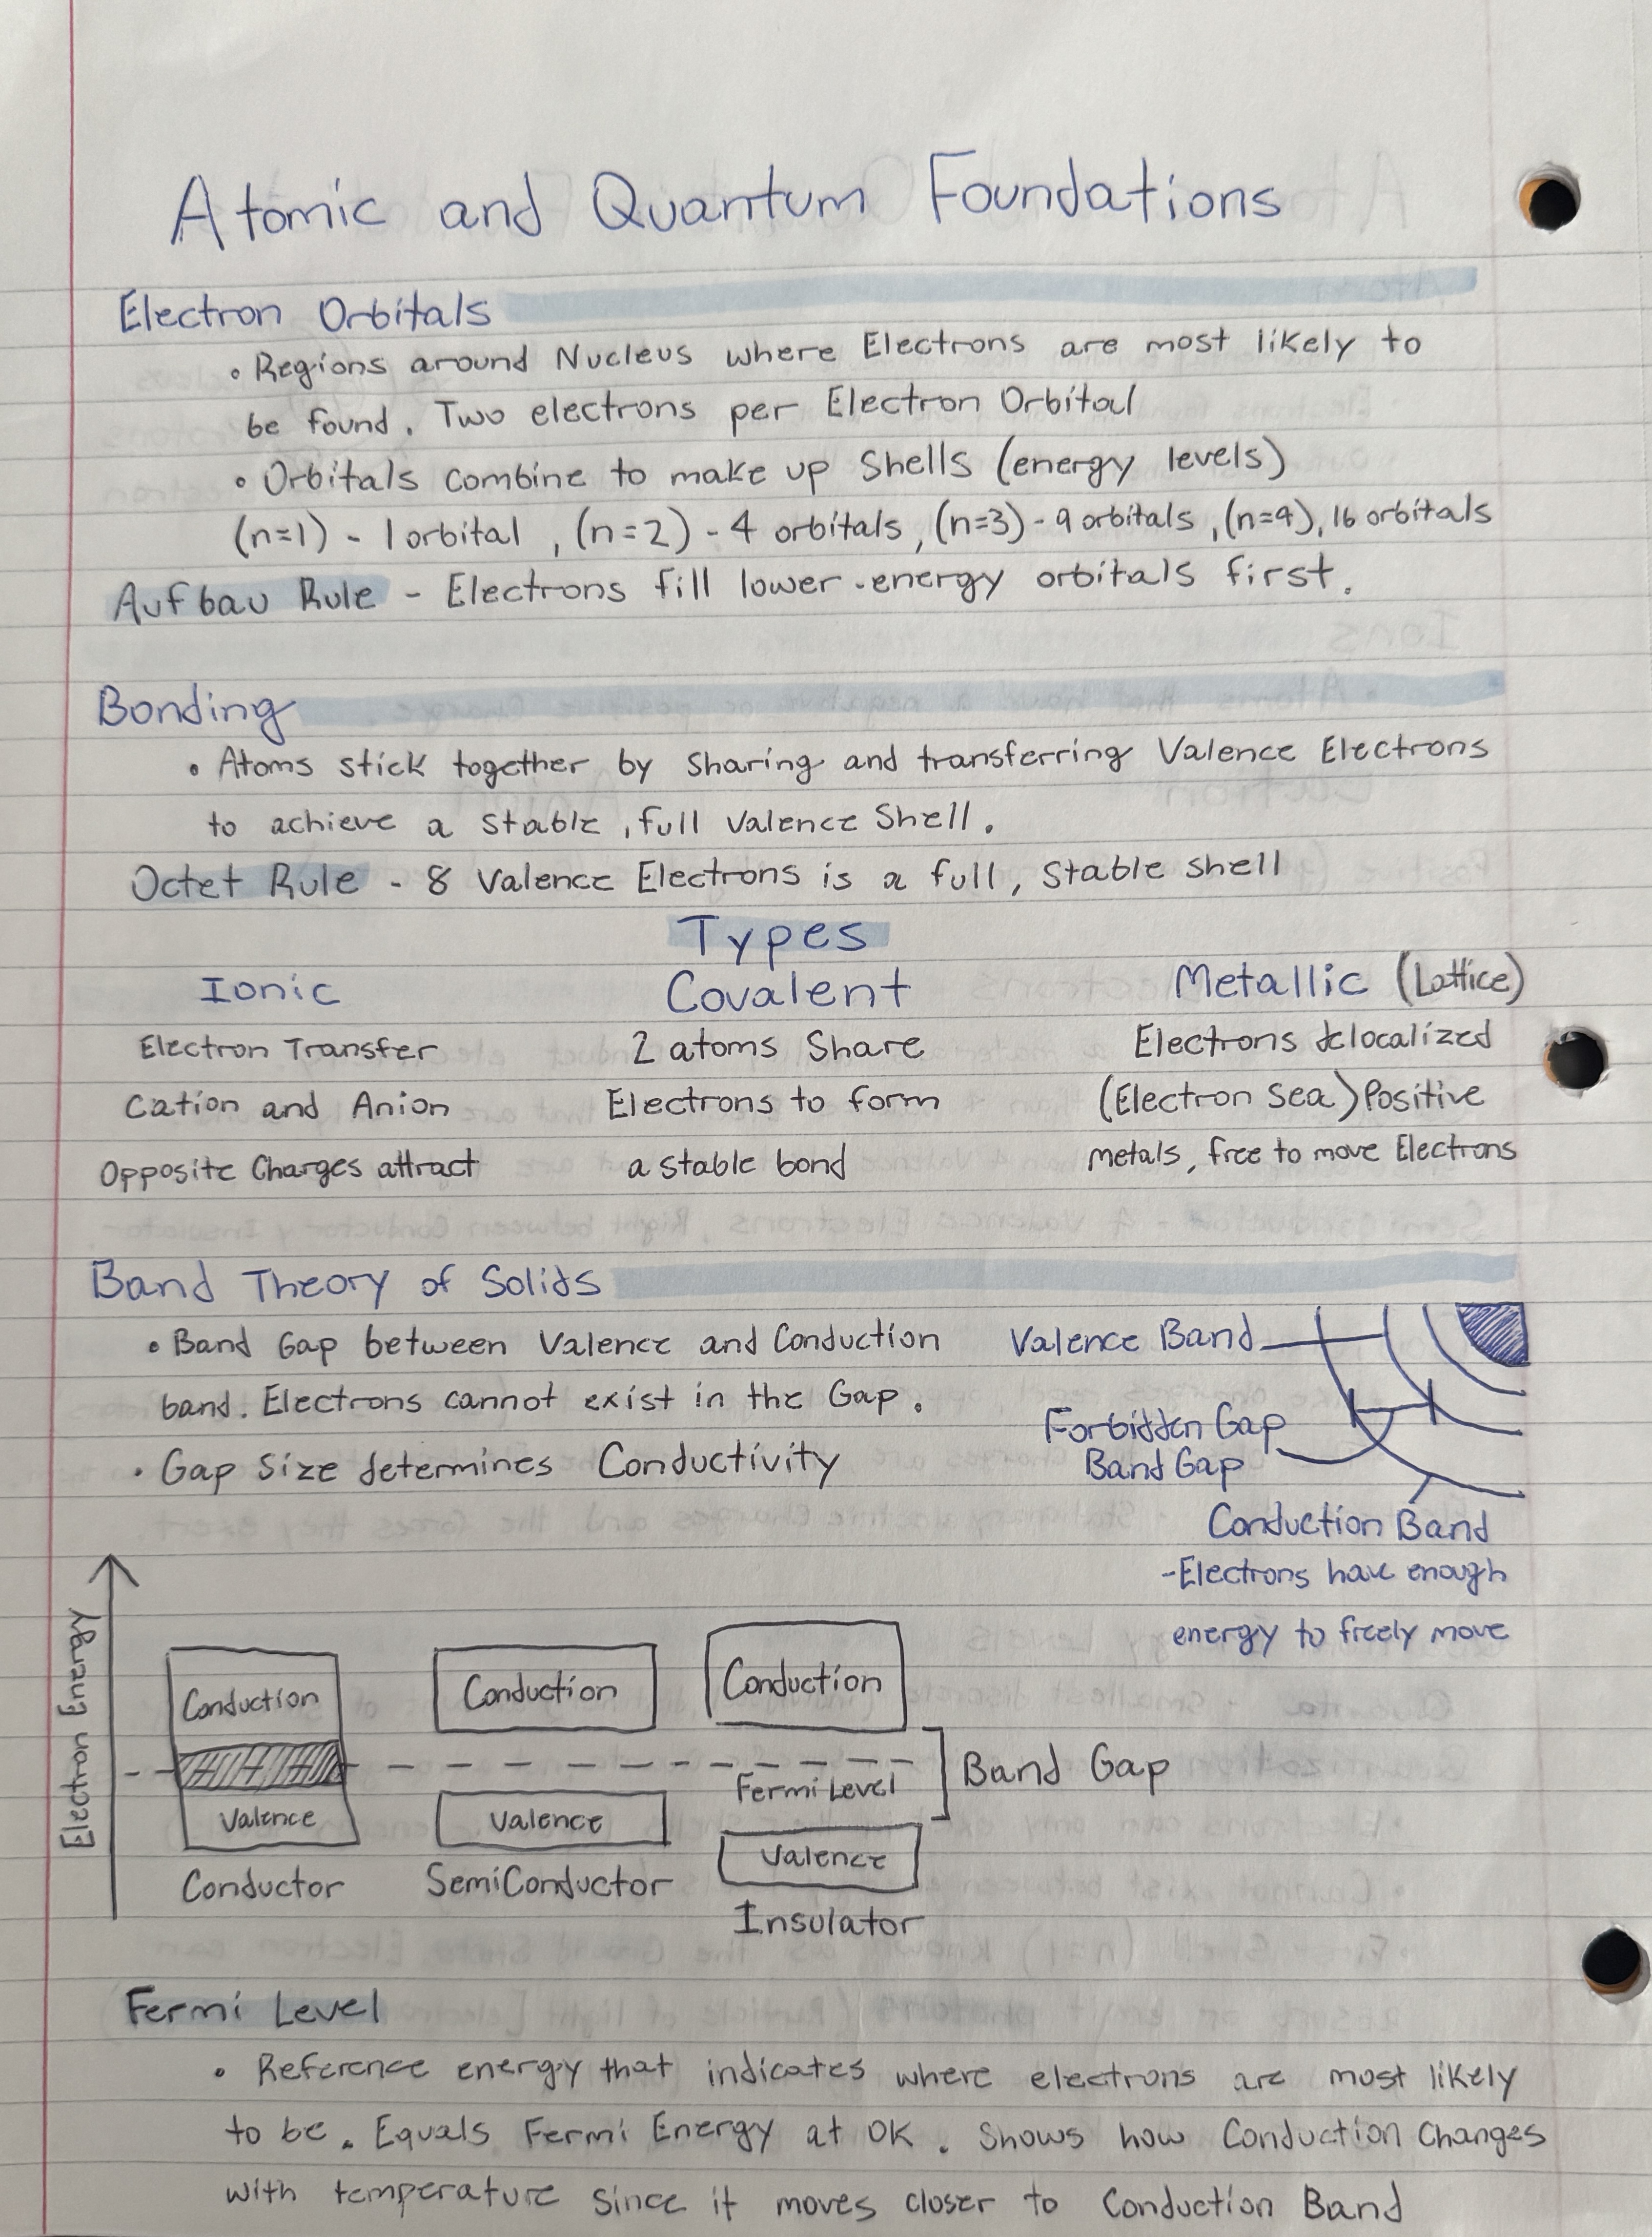 Atomic and Quantum Foundations
Electron Orbitals
• Regions around Nucleus where Electrons are most likely to
be found. Two electrons per Electron Orbital
• Orbitals combine to make up Shells (energy levels)
(n=1) - 1 orbital, (n=2) - 4 orbitals, (n=3) - 9 orbitals, (n=4), 16 orbitals
Aufbau Rule - Electrons fill lower-energy orbitals first.
Bonding
• Atoms stick together by Sharing and transferring Valence Electrons
to achieve a Stable, full Valence Shell.
Octet Rule - 8 Valence Electrons is a full, Stable shell
Types
Ionic Covalent Metallic (Lattice)
Electron Transfer 2 atoms Share Electrons delocalized
Cation and Anion Electrons to form (Electron Sea) Positive
Opposite Charges attract a stable bond metals, free to move Electrons
Band Theory of Solids
• Band Gap between Valence and Conduction
band. Electrons cannot exist in the Gap.
• Gap Size determines Conductivity
Valence Band
Forbidden Gap
Band Gap
Conduction Band
-Electrons have enough
energy to freely move
Electron Energy
Conduction Conduction Conduction
Fermi Level Band Gap
Valence Valence Valence
Conductor SemiConductor Insulator
Fermi Level
• Reference energy that indicates where electrons are most likely
to be. Equals Fermi Energy at 0K. Shows how Conduction Changes
with temperature since it moves closer to Conduction Band